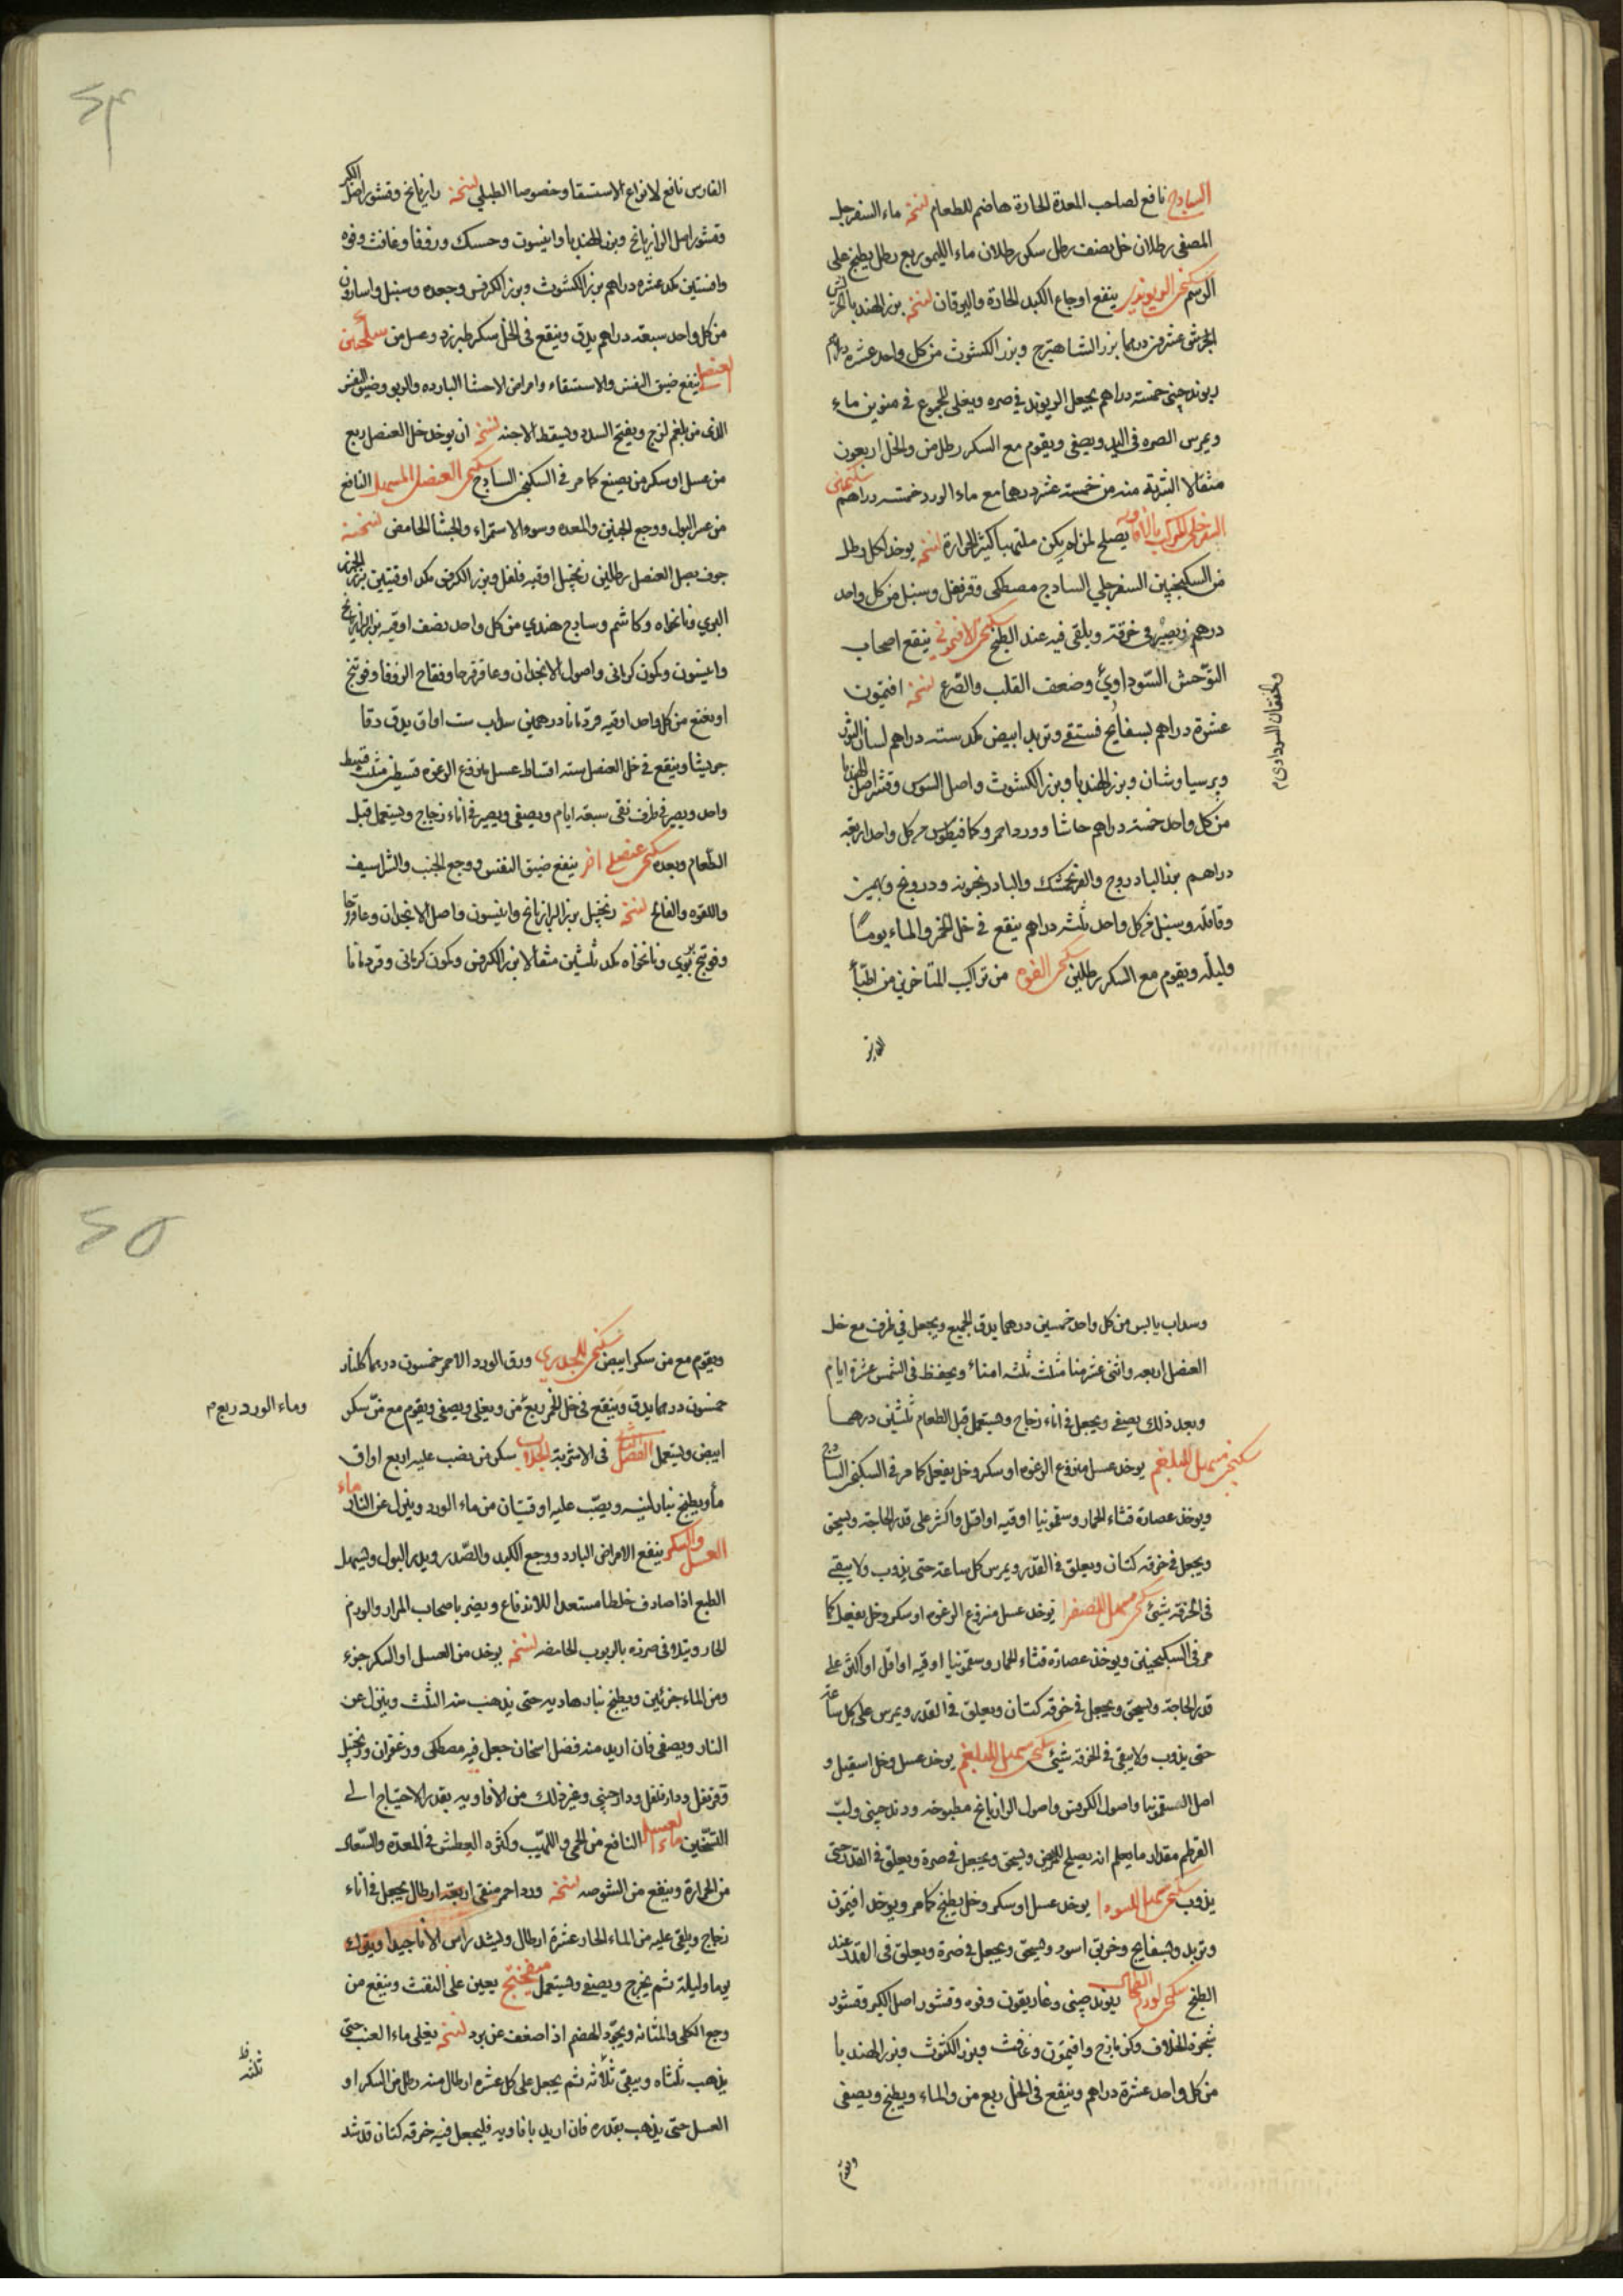 الساذج نافع لصاحب المعدة الحارة هاضم للطعام نسخة ماء السفرجل
المصفى رطلان خل نصف رطل سكر رطلان ماء الليمو ربع رطل يطبخ على
الرسم ينفع اوجاع الكبد الحارة واليرقان نسخة بزر الهندبا
عشرون درهما بزر الشاهترج وبزر الكشوث من كل واحد عشرة دراهم
ريوند چينى خمسة دراهم يجعل الريوند في صره ويغلى المجموع في منوين ماء
ويمرس الصره في اليد ويصفى ويقوم مع السكر رطل من والخل اربعون
مثقالا الشربة منه من خمسة عشر درهما مع ماء الورد خمسة دراهم سكنجبين
السفرجلى المركب بالافاويه يصلح لمن لم يكن ملتهبا كثير الحرارة نسخة يوخذ لكل رطل
من السكنجبين السفرجلي الساذج مصطكى وقرنفل وسنبل من كل واحد
درهم ويصير في خرقة ويلقى فيه عند الطبخ سكنجبين الافتيمونى ينفع اصحاب
التوحش السوداوي وضعف القلب والصرع نسخة افتيمون
والخفقان السوداوى م
عشرة دراهم بسفايج فستقى وتربد ابيض مكد ستة دراهم لسان الثور
وبرسياوشان وبزر الهندبا وبزر الكشوث واصل السوس وقشر اصل الهندبا
من كل واحد خمسة دراهم حاشا وورد احمر وكمافيطوس من كل واحد اربعة
دراهم بزر الباذروج والفرنجمشك والبادرنجبويه ودرونج وبهمين
وقاقله وسنبل من كل واحد ثلثة دراهم ينقع في خل الخمر والماء يوما
وليله ويقوم مع السكر رطلين سكنجبين الفوه من تراكيب المتاخرين من اطباء
الفارس نافع لانواع الاستسقا وخصوصا الطبلي نسخة رازيانج وقشور اصل الكبر
وقشور اصل الرازيانج وبزر الهندبا وانيسون وحسك وزوفا وغافث وفوه
وافسنتين مكد عشرة دراهم بزر الكشوث وبزر الكرفس وجعده وسنبل واسارون
من كل واحد سبعة دراهم يدق وينقع في الخل سكر طبرزد وعسل من سكنجبين
العنصل ينفع ضيق النفس والاستسقاء وامراض الاحشا البارده والربو وضيق النفس
الذى من بلغم لزج ويفتح السدد ويسقط الاجنه نسخة ان يوخذ خل العنصل ربع
من عسل او سكر من يصنع كما مر في السكنجبين الساذج سكنجبين العنصل المسهل النافع
من عسر البول ووجع الجنبين والمعده وسوء الاستمراء والجشأ الحامض نسخته
جوف بصل العنصل رطلين زنجبيل اوقيه فلفل وبزر الكرفس مكد اوقيتين بزر الجزر
البري ونانخواه وكاشم وساذج هندي من كل واحد نصف اوقيه بزر الرازيانج
وانيسون وكمون كرمانى واصول الانجدان وعاقرقرحا وفقاح الزوفا وفوتنج
او نعنع من كل واحد اوقيه قردمانا درهمين سذاب ست اواق يدق دقا
جريشا وينقع في خل العنصل سته اقساط عسل منزوع الرغوه قسطين مثلث قسط
واحد ويصير في ظرف نقى سبعة ايام ويصفى ويصير في اناء زجاج ويستعمل قبل
الطعام وبعده سكنجبين عنصلى اخر ينفع ضيق النفس ووجع الجنب والشراسيف
واللقوه والفالج نسخة زنجبيل بزر الرازيانج وانيسون واصل الانجدان وعاقرقرحا
وفوتنج بري ونانخواه مكد ثلثين مثقالا بزر الكرفس وكمون كرمانى وقردمانا
وسداب يابس من كل واحد خمسين درهما يدق الجميع ويجعل في ظرف مع خل
العنصل اربعه واثنى عشر منا مثلث ثلثه امناء ويحفظ في الشمس عشرة ايام
وبعد ذلك يصفى ويجعل في اناء زجاج ويستعمل قبل الطعام ثلثين درهما
سكنجبين مسهل للبلغم يوخذ عسل منزوع الرغوه او سكر وخل يفعل كما مر في السكنجبين الساذج
ويوخذ عصارة قثاء الحمار وسقمونيا اوقيه او اقل واكثر على قدر الحاجة ويسحق
ويجعل في خرقه كتان ويعلق في القدر ويمرس كل ساعة حتى يذوب ولا يبقى
في الخرقة شئ سكنجبين مسهل للصفرا يوخذ عسل منزوع الرغوه او سكر وخل يفعل كما
مر في السكنجبين ويوخذ عصارة قثاء الحمار وسقمونيا اوقيه او اقل او اكثر على
قدر الحاجة ويسحق ويجعل في خرقه كتان ويعلق في القدر ويمرس على كل ساعة
حتى يذوب ولا يبقى في الخرقه شئ سكنجبين مسهل للبلغم يوخذ عسل وخل اسقيل و
اصل السقمونيا واصول الكرفس واصول الرازيانج مطبوخه ودند چينى ولب
القرطم مقدار ما يعلم انه يصلح للمريض ويسحق ويجعل في صرة ويعلق في القدر حتى
يذوب سكنجبين مسهل للسودا يوخذ عسل او سكر وخل يطبخ كما مر ويوخذ افتيمون
وتربد وبسفايج وخربق اسود ويسحق ويجعل في صرة ويعلق في القدر عند
الطبخ سكنجبين لورم الطحال ريوند چينى وغاريقون وفوه وقشور اصل الكبر وقشور
شجرة الخلاف وكزمازج وافتيمون وغافث وبزر الكشوث وبزر الهندبا
من كل واحد عشرة دراهم وينقع في الخل ربع من والماء ويطبخ ويصفى
ويقوم
ويقوم مع من سكر ابيض سكنجبين للجدرى ورق الورد الاحمر خمسون درهما كلنار
خمسون درهما يدق وينقع في خل الخمر ربع من ويغلى ويصفى ويقوم مع من سكر
وماء الورد ربع م
ابيض ويستعمل الفصل في الاشربة الجلاب سكر من يصب عليه اربع اواق
ماء ويطبخ بنار لينه ويصب عليه اوقيتان من ماء الورد وينزل عن النار ماء
العسل والسكر ينفع الامراض البارد ووجع الكبد والصدر ويدر البول ويسهل
الطبع اذا صادف خلطا مستعدا للاندفاع ويضر باصحاب المرار والورم
الحار ويتلافى ضرره بالربوب الحامضه نسخة يوخذ من العسل او السكر جزء
ومن الماء جزئين ويطبخ بنار هاديه حتى يذهب منه الثلث وينزل عن
النار ويصفى فان اريد منه فضل اسخان جعل فيه مصطكى وزعفران وزنجبيل
وقرنفل ودارفلفل ودارچينى وغير ذلك من الافاويه بقدر الاحتياج الى
التسخين ماء العسل النافع من الحمى واللهيب وكثره العطش في المعدة والسعال
من الحرارة وينفع من الشوصه نسخة ورد احمر منقى اربعة ارطال يجعل في اناء
زجاج ويلقى عليه من الماء الحار عشرة ارطال ويشد راس الاناء جيدا ويترك
يوما وليلة ثم يخرج ويصفى ويستعمل ميفختج يعين على النفث وينفع من
وجع الكلى والمثانه ويجود الهضم اذا ضعف عن برد نسخة يغلى ماء العنب حتى
يذهب ثلثاه ويبقى ثلاثه ثم يجعل على كل عشره ارطال منه رطل من السكر او
ثلثه ظ
العسل حتى يذهب بقدره فان اريد بافاويه فليجعل فيه خرقه كتان قد شد